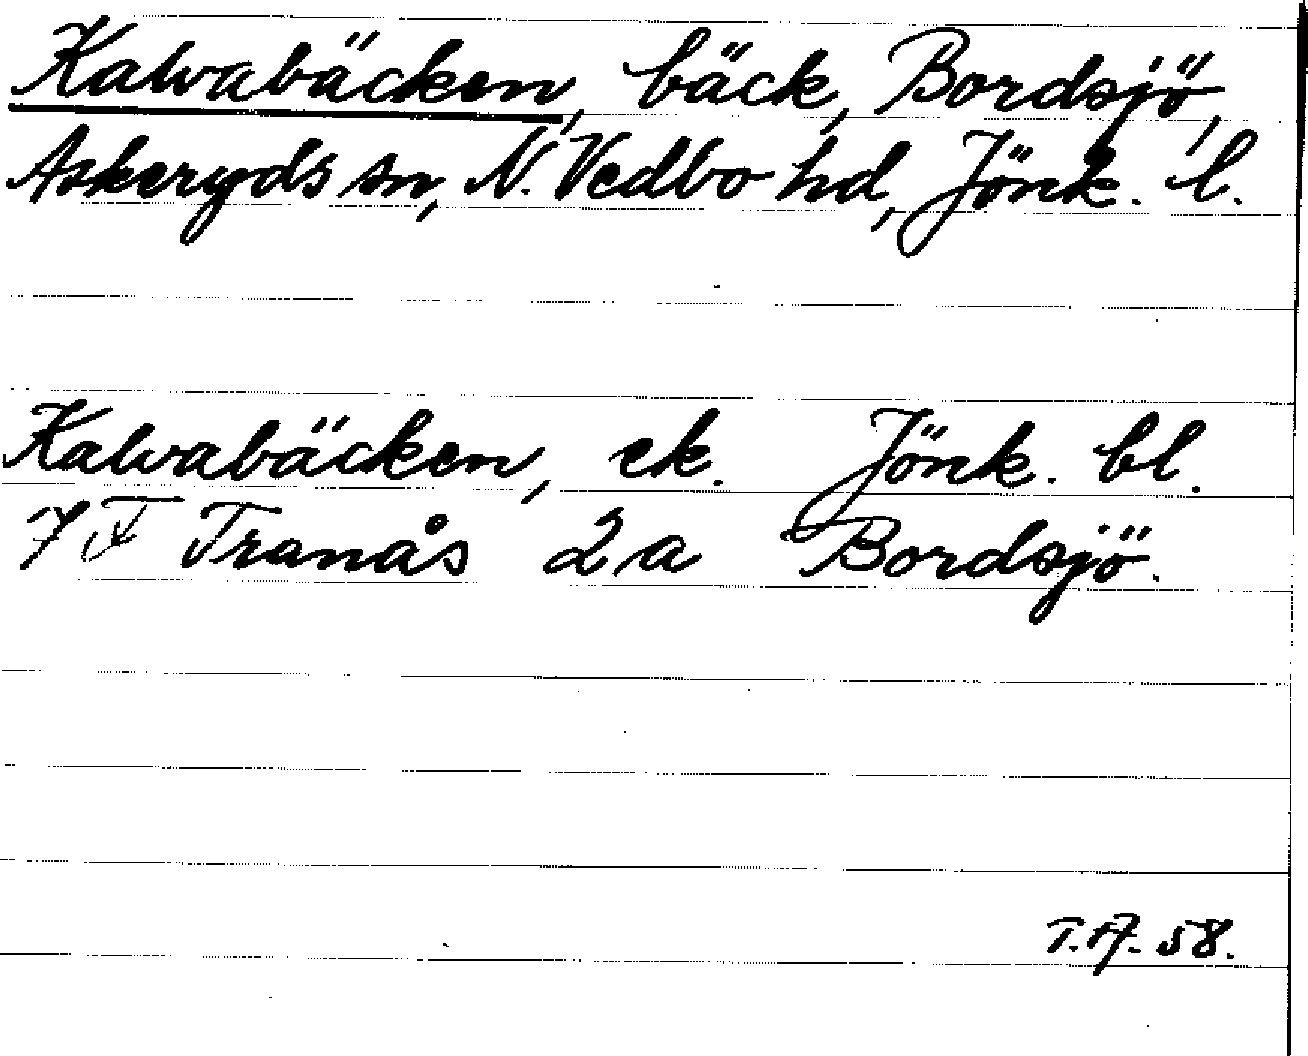 Kalvabäcken, bäck, Bordsjö,
Askeryds sn, N. Vedbo hd, Jönk. l.
Kalvabäcken, ek. Jönk. bl.
7 Tranås 2a Bordsjö.
T.A. 58.